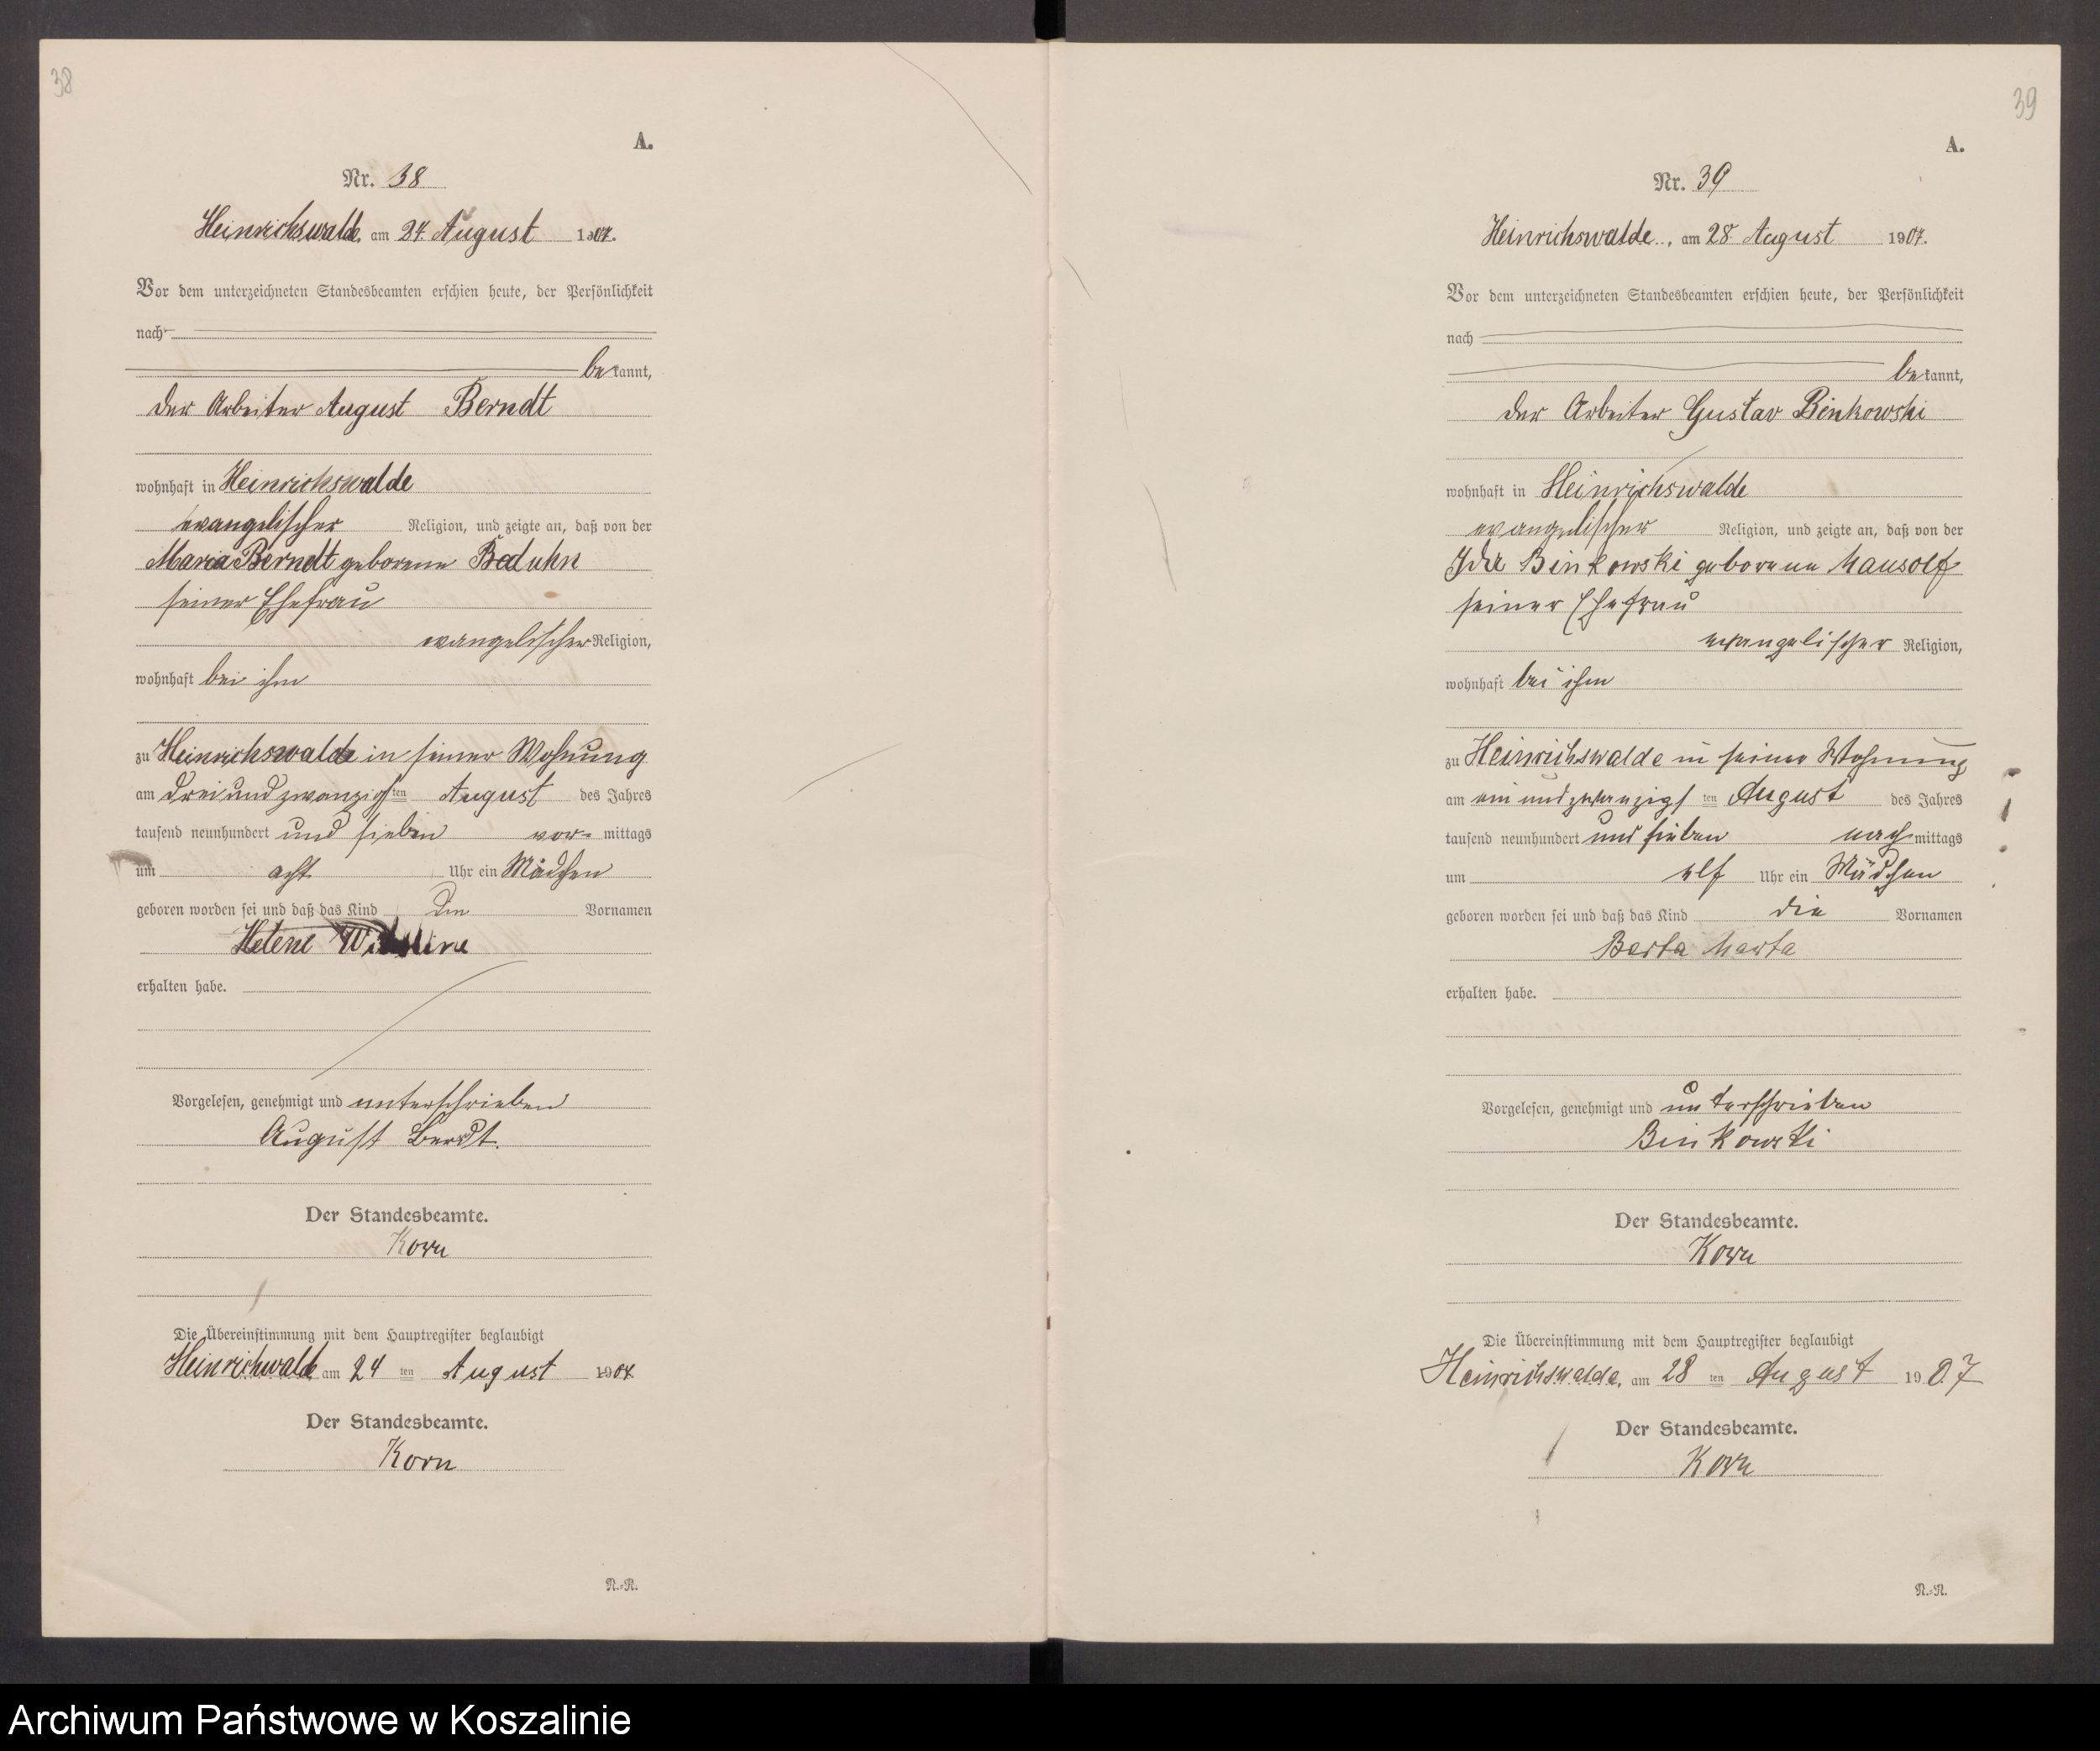 38
A.
Nr. 38
Heinrichswalde, am 24. August 1907.
Vor dem unterzeichneten Standesbeamten erschien heute, der Persönlichkeit
nach
bekannt,
der Arbeiter August Berndt
wohnhaft in Heinrichswalde
evangelischer Religion, und zeigte an, daß von der
Maria Berndt geborene Beduhn
seiner Ehefrau
evangelischer Religion,
wohnhaft bei ihm
zu Heinrichswalde in seiner Wohnung
am dreiundzwanzigsten August des Jahres
tausend neunhundert und sieben vor- mittags
um acht Uhr ein Mädchen
geboren worden sei und daß das Kind die Vornamen
Helene
erhalten habe.
Vorgelesen, genehmigt und unterschrieben
August Berndt.
Der Standesbeamte.
Korn
Die Übereinstimmung mit dem Hauptregister beglaubigt
Heinrichwalde am 24 ten August 1907
Der Standesbeamte.
Korn
N.-R.
39
A.
Nr. 39
Heinrichswalde, am 28. August 1907.
Vor dem unterzeichneten Standesbeamten erschien heute, der Persönlichkeit
nach
bekannt,
der Arbeiter Gustav Binkowski
wohnhaft in Heinrichswalde
evangelischer Religion, und zeigte an, daß von der
Ida Binkowski geborene Mansolf
seiner Ehefrau
evangelischer Religion,
wohnhaft bei ihm
zu Heinrichswalde in seiner Wohnung
am ein und zwanzigsten August des Jahres
tausend neunhundert und sieben nach mittags
um elf Uhr ein Mädchen
geboren worden sei und daß das Kind die Vornamen
Berta Marta
erhalten habe.
Vorgelesen, genehmigt und unterschrieben
Binkowski
Der Standesbeamte.
Korn
Die Übereinstimmung mit dem Hauptregister beglaubigt
Heinrichswalde, am 28 ten August 1907
Der Standesbeamte.
Korn
N.-R.
Archiwum Państwowe w Koszalinie